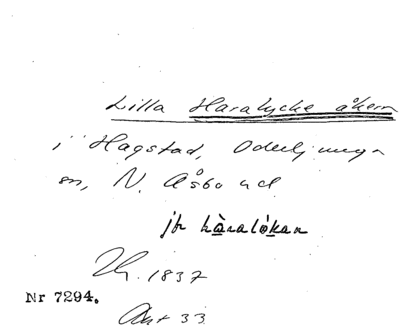 Lilla Haralycke åkern
i Hagstad, Oderljunga
sn, N. Åsbo hd
jfr hàralókan
Lh. 1837
Nr 7294.
Akt 33